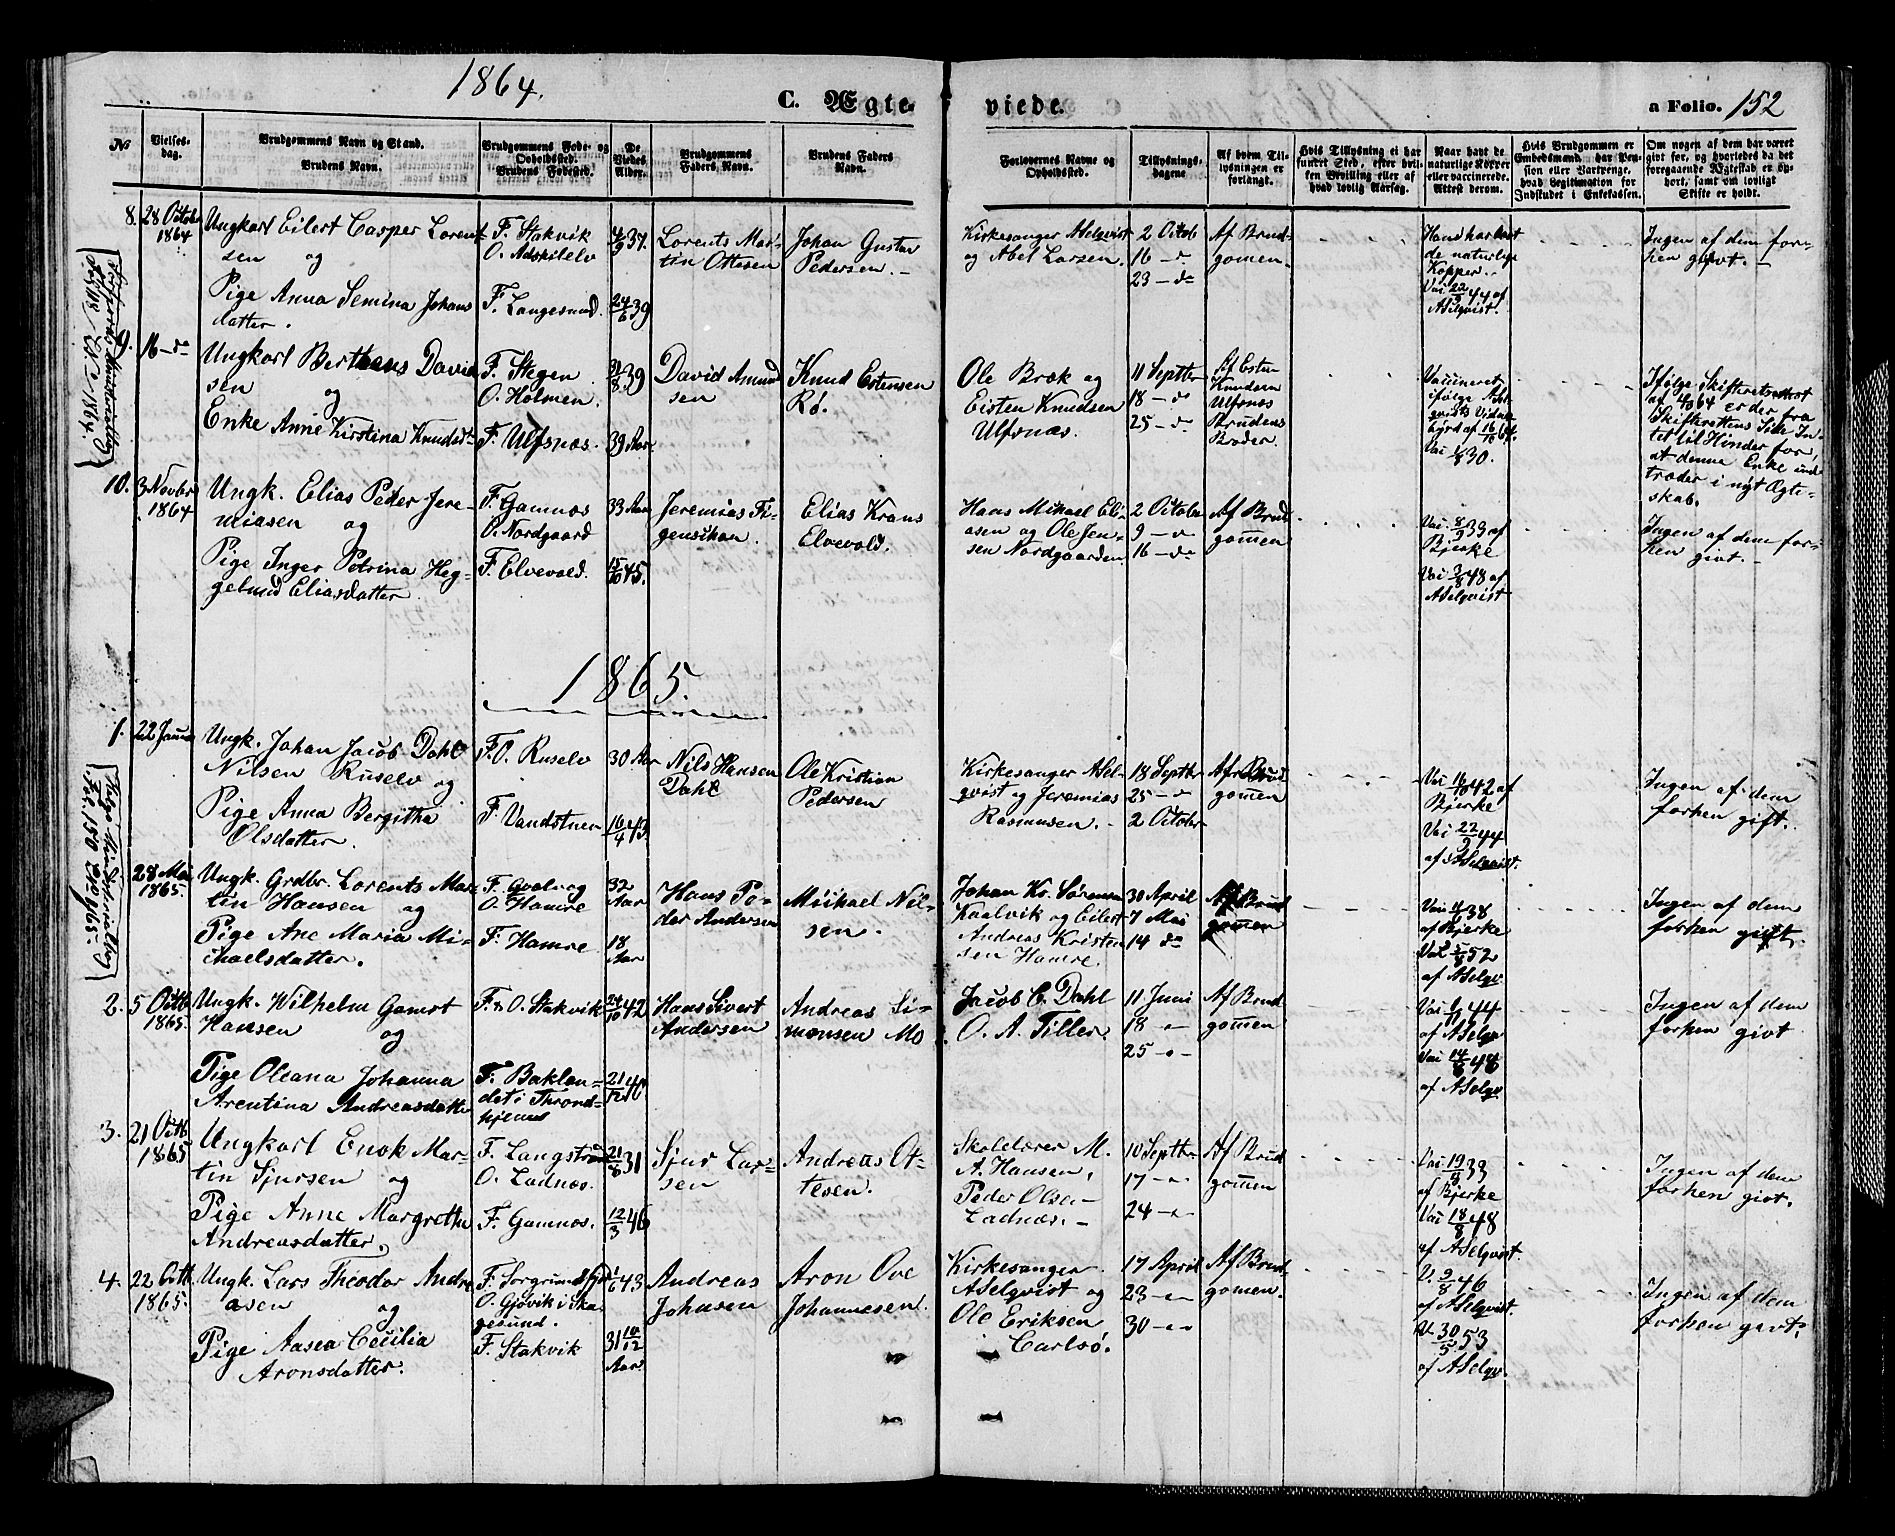 1864.
C. Ægte
viede.
a Folio. 152
No
Vielses-
dag.
Brudgommens Navn og Stand.
Brudens Navn.
Brudgommens Føde- og
Opholdssted.
Brudens Fødested.
De
Viedes
Alder.
Brudgommens
Faders Navn.
Brudens Faders
Navn.
Forlovernes Navne og
Opholdssted.
Tillysnings-
dagene
Af hvem Til-
lysningen er
forlangt.
Hvis Tillysning ei har
fundet Sted, efter hvil-
ken Bevilling eller af
hvad lovlig Aarsag.
Naar havt de
naturlige Kopper
eller vaccinerede.
Attest derom.
Hvis Brudgommen er
Embedsmand, har Pen-
sion eller Vartpenge,
hvad Legitimation for
Indskudet i Enkekassen.
Om nogen af dem har været
givt før, og hvorledes da det
foregaaende Ægteskab er op-
hørt, samt om lovligt
Skifte er holdt.
8. 28 Octob
1864
Ungkarl Eilert Casper Lorent-
sen og
Pige Anna Semina Johans
datter.
F. Stakvik
O. Adskilelv
F. Langesund.
4/9 37
24/6 39
Lorents Mar-
tin Ottesen
Johan Gustav
Pedersen.
Kirkesanger ASelqvist
og Abel Larsen.
2 Octob
16 - do
23 - do
Af Brud-
gomen.
Hand har havt
de naturlige
Kopper.
Vac 22/9 44 af
ASelqvist.
Ingen af dem for-
hen givt.
9. 16 - do
Ungkarl Bertheus David
sen og
Enke Anne Kirstina Knudsdt
F. Stegen
O. Holmen.
F. Ulfsnæs.
31/8 39
39 Aar
David Amund
sen
Knud Estensen
Rø.
Ole Bræk og
Eisten Knudsen
Ulfsnæs.
11 Septbr
18 - do
25 - do
Af Esten
Knudsen
Ulfsnæs
Brudens
Broder.
Vaccineret
ifølge ASel-
qvists Vidnes
byrd af 16/10 64.
Ifølge Skifteretsattest
af 4/8 64 er der fra
Skifterettens Side In-
tet til Hinder for,
at denne Enke ind
træder i nyt Ægte-
skab.
10. 3 Novbr
1864
Ungk. Elias Peder Jere-
miasen og
Pige Inger Petrina Heg-
gelund Eliasdatter.
F. Gamnæs
O. Nordgaard
F. Elvevold.
33 Aar
15/10 45.
Jeremias Fi-
genschau.
Elias Krans
Elvevold.
Hans Mikael Eli-
asen og Ole Jen-
sen Nordgaarden
2 Octobr
9 - do
16 - do
Af Brud
gomen
Vac. 8/9 39 af
Bjerke
Vac 3/8 48 af
ASelqvist
Ingen af dem for-
hen givt.
1865.
1. 22 Janua
Ungk. Johan Jacob Dahl
Nilsen Ruselv og
Pige Anna Bergitha
Olsdatter.
F. O. Ruselv
F. Vandstuen
30 Aar
16/4 43
Nils Hansen
Dahl
Ole Kristian
Pedersen
Kirkesanger ASel-
qvist og Jeremias
Rasmusen.
18 Septbr
25 - do
2 Octobr
Af Brud
gomen
Vac 16/10 42 af
Bjerke
Vac 22/9 44
af ASelqvist.
Ingen af dem
forhen gift.
28 Mai
1865.
Ungk. Grdbr. Lorents Mar
tin Hansen og
Pige Ane Maria Mi-
chaelsdatter.
O. Hamre
F. Hamre
32
Aar
18
Aar
Hans Pe-
der Andersen
Mickael Nil-
sen.
Johan Kr. Sørensen
Kaalvik og Eilert
Andreas Kristen
sen Hamre.
30 April
7 Mai
14 do
Af Brud
gomen
af Bjerke
af ASelqv.
Ingen af dem
forhen gift.
2. 5 Octb
1865.
Ungk. Wilhelm Gamst
Hansen og
Pige Oleana Johanna
Arentina Andreasdatter
F. & O. Stakvik
F. Baklan-
det i Thrond-
hjem
24/10 42
21/12 40
Hans Sivert
Andersen
Andreas Si-
monsen Mo
Jacob C. Dahl
O. A. Tiller.
11 Juni
18 -
25 -
Af Brud
gomen
af ASelqv
Vac 14/8 48
af ASelqv.
Ingen af dem
forhen givt
3. 21 Octb
1865
Ungkarl Enok Mar-
tin Sjursen og
Pige Anne Margrethe
Andreasdatter.
F. Langstrand
O. Ladnæs.
F. Gamnæs.
21/8 31
12/3 46
Sjur Lar-
sen
Andreas Ot-
tesen.
Skolelærer M.
A. Hansen,
Peder Olsen
Ladnæs.
10 Septbr
17 -
24 -
Af Brud
gomen
Vac 19/9 33
af Bjerke
Vac 18/8 48
af ASelqvist.
Ingen af dem
forhen givt.
4. 22 Octb.
1865.
Ungk. Lars Theodor Andre
asen og
Pige Aasea Cecilia
Aronsdatter.
O. Gjøvik i Ska-
gesund.
F. Stakvik
43
31 10/12
Aar
Andreas
Johnsen
Aron Ove
Johannesen.
Kirkesanger
ASelqvist og
Ole Eriksen
Carlsø.
17 April
23 -
30 -
Af Brud-
gomen.
V. 9/8 46
af ASelqvist.
V. 30/5 53.
af ASelqv.
Ingen af dem
forhen givt.